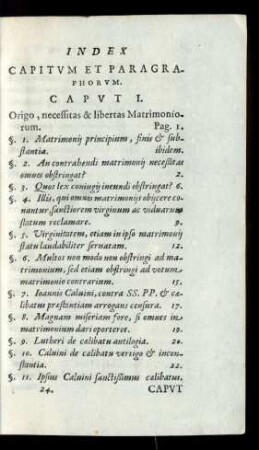 INDEX
CAPITVM ET PARAGRA-
PHORVM.
CAPVT I.
Origo, necessitas & libertas Matrimonio-
rum. Pag. 1.
§. 1. Matrimonij principium, finis & sub-
stantia. ibidem.
§. 2. An contrahendi matrimonij necessitas
omnes obstringat? 2.
§. 3. Quos lex coniugij ineundi obstringat? 6.
§. 4. Illis, qui omnes matrimonijs obijcere co-
nantur, sanctiorem virginum ac viduarum
statum reclamare. 9.
§. 5. Virginitatem, etiam in ipso matrimonij
statu laudabiliter seruatam. 12.
§. 6. Multos non modo non obstringi ad ma-
trimonium, sed etiam obstringi ad votum
matrimonio contrarium. 15.
§. 7. Ioannis Caluini, contra SS. PP. & cæ-
libatus præstantiam arrogans censura. 17.
§. 8. Magnam miseriam fore, si omnes in
matrimonium dari oporteret. 19.
§. 9. Lutheri de cælibatu antilogia. 20.
§. 10. Caluini de cælibatu vertigo & incon-
stantia. 22.
§. 11. Ipsius Caluini sanctissimus cælibatus.
24. CAPVT